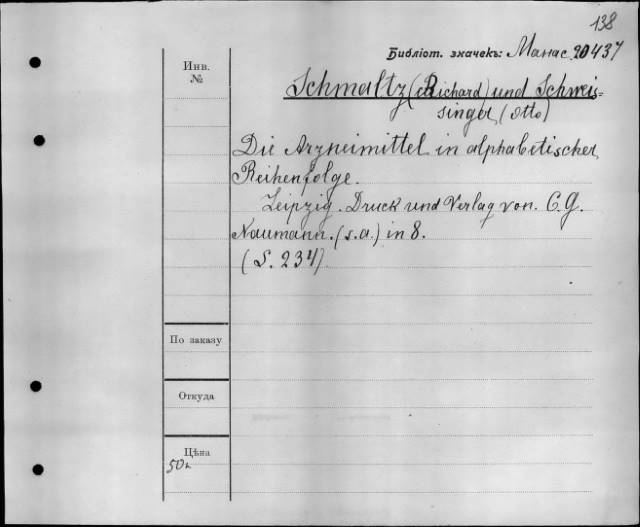 138
Библіот. значекъ: Манас. 20437
Инв.
№
Schmaltz (Richard) und Schweis-
singer, (Otto)
Die Arzneimittel in alphabetischer
Reihenfolge.
Leipzig. Druck und Verlag von. C. G.
Naumann. (s.a.) in 8.
(S. 234)
По заказу
Откуда
Цѣна
50к